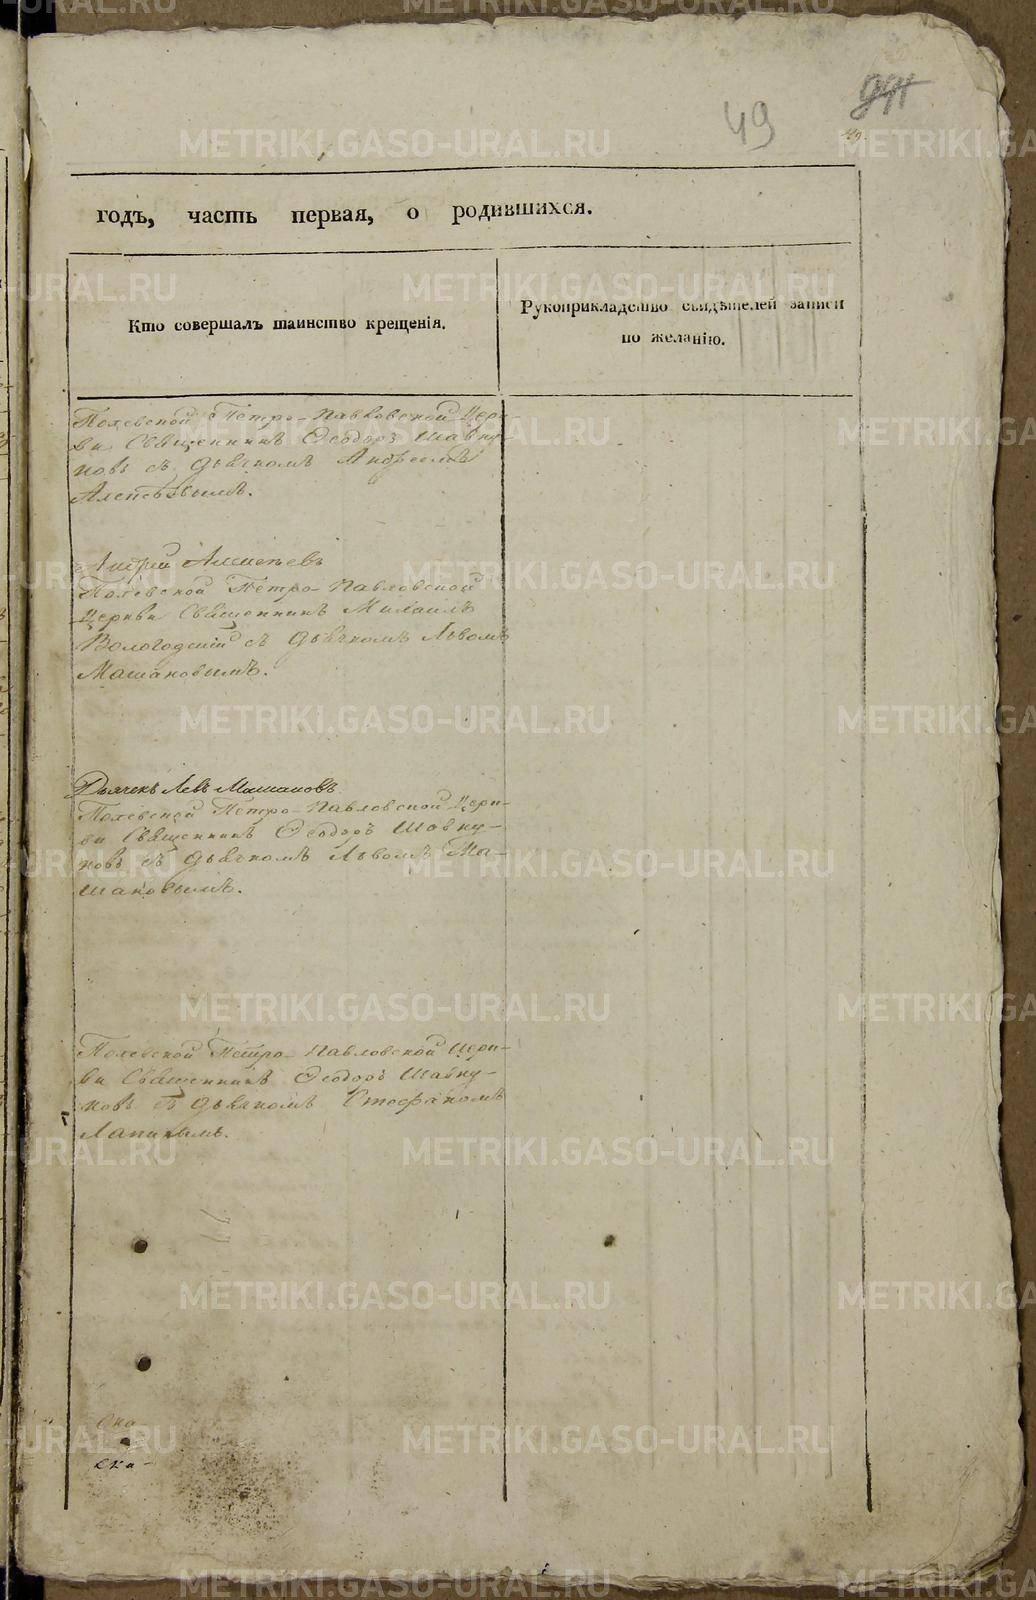 49
49.
годъ, часть первая, о родившихся.
Кто совершалъ таинство крещенія.
Рукоприкладство свидѣтелей записи
по желанію.
Полевской Петро-Павловской Церк-
ви Священникъ Ѳеодоръ Шавку-
новъ съ дьячкомъ Андреемъ
Алексѣевымъ.
Андрей Алексѣевъ
Полевской Петро-Павловской
Церкви Священникъ Михаилъ
Вологодский съ дьячкомъ Львомъ
Машановымъ.
Дьячекъ Левъ Машановъ
Полевской Петро-Павловской Церк-
ви Священникъ Ѳеодоръ Шавку-
новъ съ дьячкомъ Львомъ Ма-
шановымъ.
Полевской Петро-Павловской Церк-
ви Священникъ Ѳеодоръ Шавку-
новъ съ дьячкомъ Стефаномъ
Лапинымъ.
METRIKI.GASO-URAL.RU